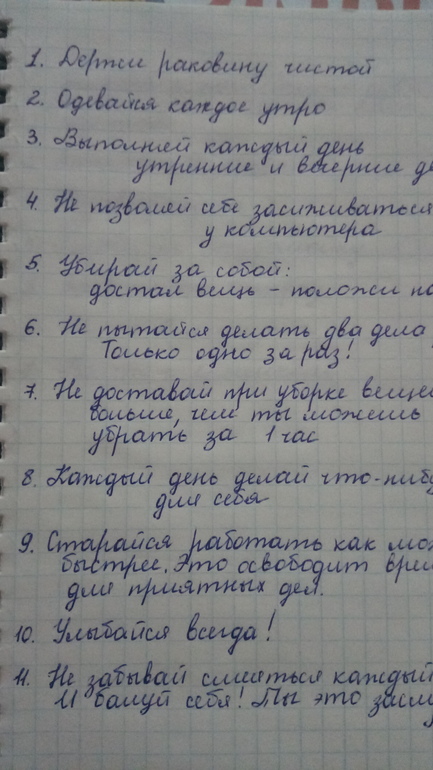 1. Держи раковину чистой
2. Одевайся каждое утро
3. Выполняй каждый день
утренние и вечерние де
4. Не позволяй себе засиживаться
у компьютера
5. Убирай за собой:
достал вещь - положи на
6. Не пытайся делать два дела
Только одно за раз!
7. Не доставай при уборке вещей
больше, чем ты можешь
убрать за 1 час
8. Каждый день делай что-нибу
для себя
9. Старайся работать как мож
быстрее. Это освободит врем
для приятных дел.
10. Улыбайся всегда!
11. Не забывай смеяться каждый
И балуй себя! Ты это заслу